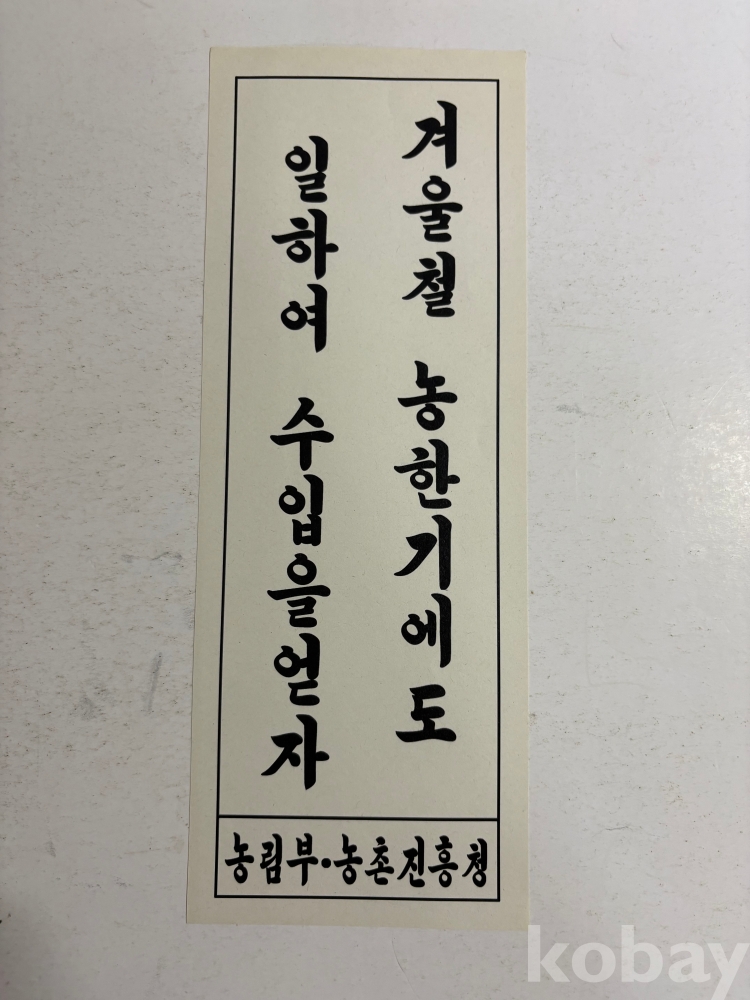 겨울철 농한기에도
일하여 수입을얻자
농림부·농촌진흥청
kobay